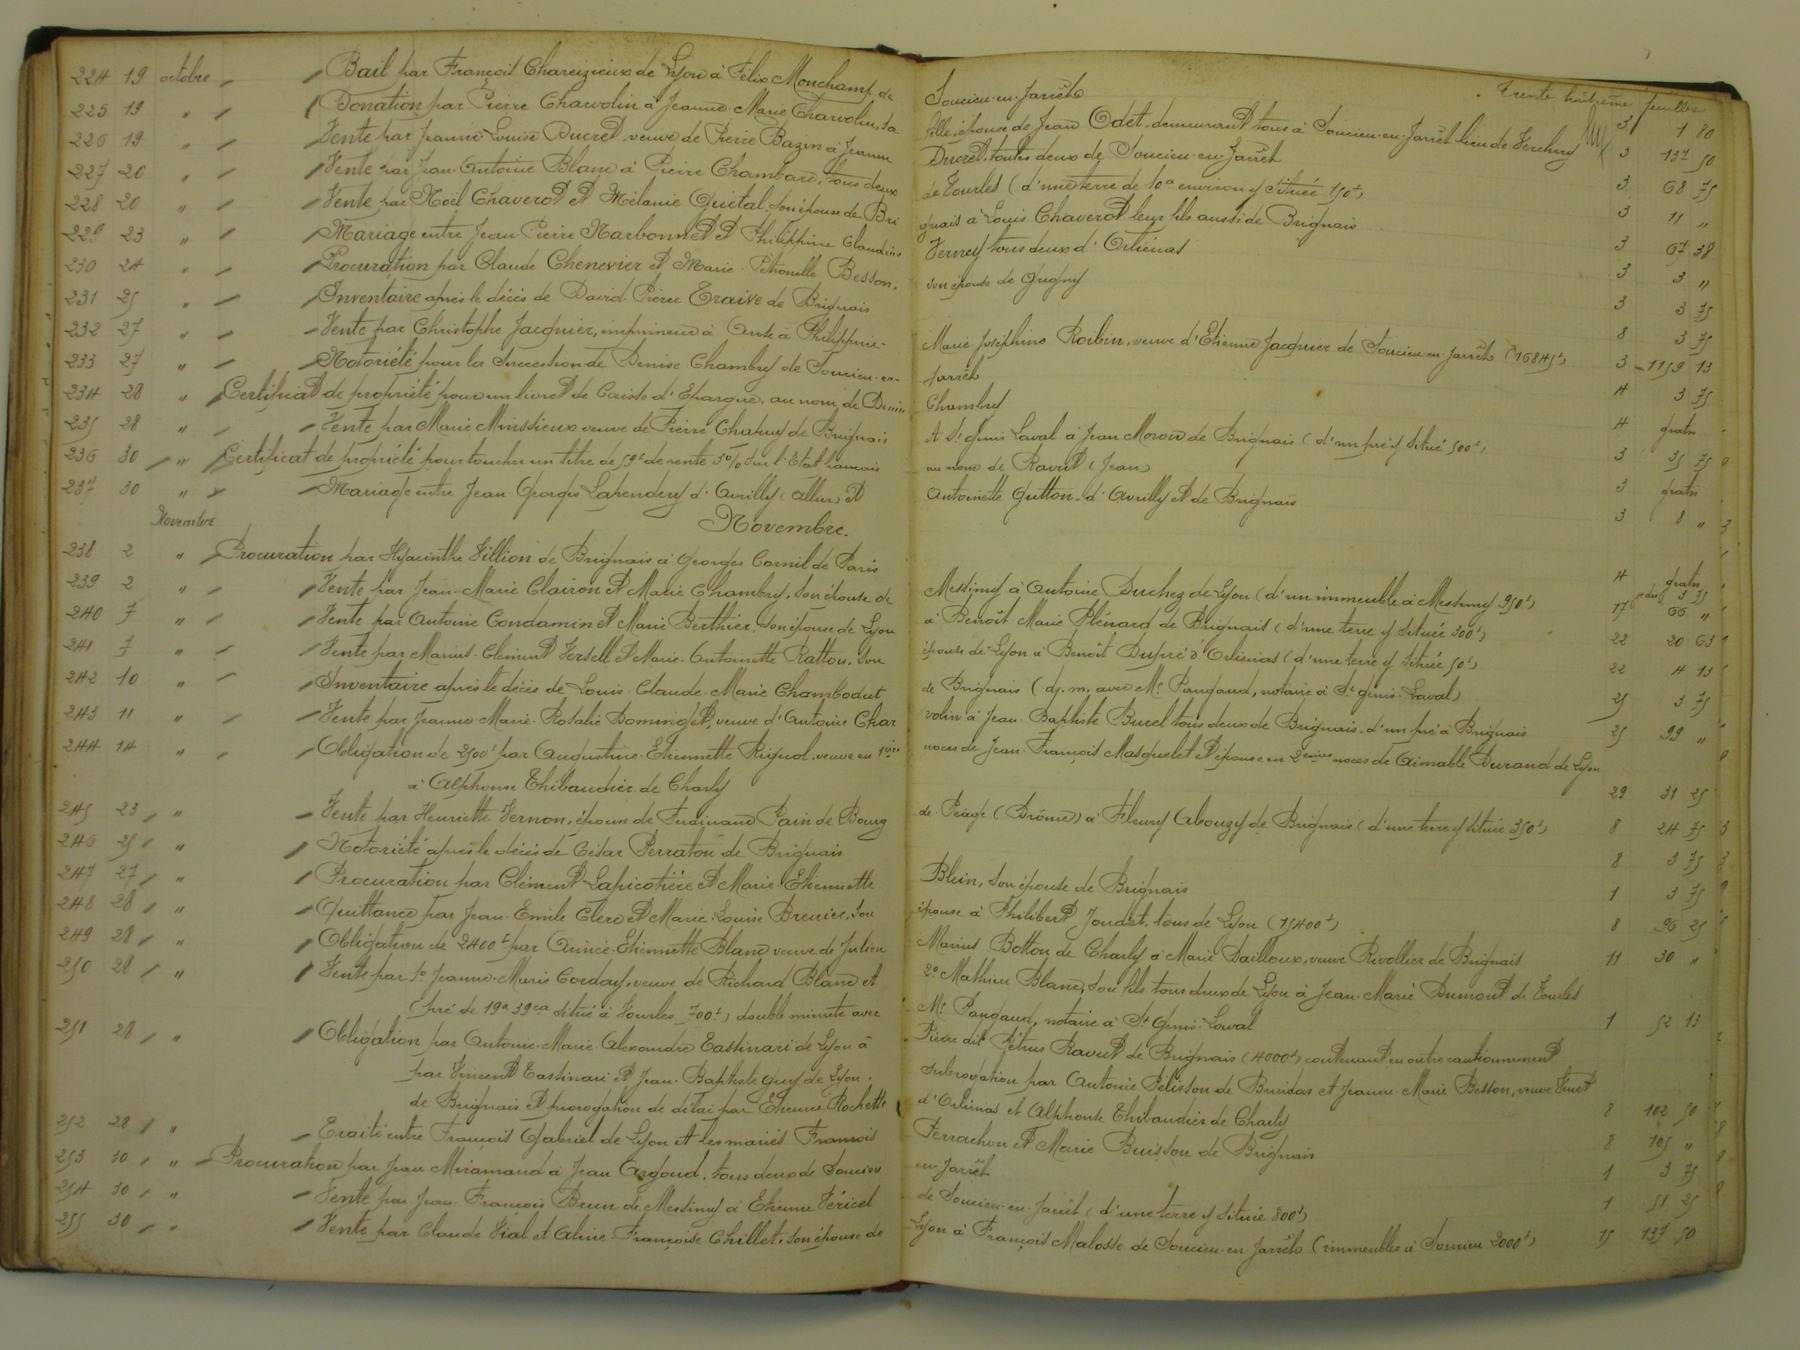 Trente huitième feuillet
224 19 octobre Bail par François Chareizieux de Lyon à Félix Monchamp de Soucieu-en-Jarrêt 3 1 80
225 19 " Donation par Pierre Charvolin à Jeanne-Marie Charvolin, sa fille, épouse de Jean Odet, demeurant tous à Soucieu-en-Jarrêt lieu de Verchery 3 137 50
226 19 " Vente par Jeanne Louise Ducret veuve de Pierre Bazin à Jeanne Ducret, toutes deux de Soucieu-en-Jarrêt 3 68 75
227 20 " Vente par Jean-Antoine Blanc à Pierre Chambard, tous deux de Vourles (d'une terre de 10a environ y située 150f) 3 11 "
228 20 " Vente par Noël Chaverot et Mélanie Quiétal, son épouse de Brignais à Louis Chaverot leur fils aussi de Brignais 3 67 38
229 23 " Mariage entre Jean-Pierre Narbonnet et Philippine Claudine Verney tous deux d'Orliénas 3 3 "
230 24 " Procuration par Claude Chenevier et Marie-Pétronille Besson, son épouse de Grigny 3 3 75
231 25 " Inventaire après le décès de David-Pierre Traive de Brignais 8 3 75
232 27 " Vente par Christophe Jacquier, imprimeur à Anse à Philippine-Marie Joséphine Roibin, veuve d'Etienne Jacquier de Soucieu-en-Jarrêt (16845f) 3 1159 13
233 27 " Notoriété pour la succession de Denise Chambry de Soucieu-en-Jarrêt 4 3 75
234 28 " Certificat de propriété pour un livret de Caisse d'Epargne au nom de Denise Chambry 4 gratis
235 28 " Vente par Marie Minssieux veuve de Pierre Chapuy de Brignais et St Genis Laval à Jean Moroud de Brignais (d'un pré y situé 500f) 3 35 75
236 30 " Certificat de propriété pour toucher un titre de 59f de rente 3% sur l'Etat français au nom de Ravut (Jean) 3 gratis
237 30 " Mariage entre Jean Georges Lapendery d'Avrilly (Allier) et Antoinette Gutton, d'Avrilly et de Brignais 3 8 "
Novembre Novembre.
238 2 " Procuration par Hyacinthe Villion de Brignais à Georges Cornil de Paris 4 gratis
239 2 " Vente par Jean-Marie Clairon et Marie Chambry, son épouse de Messimy à Antoine Duchez de Lyon (d'un immeuble à Messimy 950f) 17 66 "
240 7 " Vente par Antoine Condamin et Marie Berthier, son épouse de Lyon à Benoît Marie Plénard de Brignais (d'une terre y située 300f) 22 20 63
241 7 " Vente par Marius-Clément Versell et Marie-Antoinette Rattou, son épouse de Lyon à Benoît Dupré d'Orliénas (d'une terre y située 50f) 22 4 13
242 10 " Inventaire après le décès de Louis-Claude-Marie Chambodut de Brignais (dj. m. avec Me Paugaud, notaire à St Genis-Laval) 25 3 75
243 11 " Vente par Jeanne-Marie-Rosalie Dominget, veuve d'Antoine Charvolin à Jean-Baptiste Burel tous deux de Brignais, d'un pré à Brignais 25 99 "
244 14 " Obligation de 2500f par Augustine-Etiennette Rignol, veuve en 1ères noces de Jean-François Masquelet et épouse en 2èmes noces de Aimable Durand de Lyon
à Alphonse Thibaudier de Charly 29 31 25
245 23 " Vente par Henriette Vernon, épouse de Ferdinand Gain de Bourg de Péage (Drôme) à Fleury Abouzy de Brignais (d'une terre y située 350f) 8 24 75
246 25 " Notoriété après le décès de César Perraton de Brignais 8 3 75
247 27 " Procuration par Clément Lapicotière et Marie-Etiennette Blein, son épouse de Brignais 1 3 75
248 28 " Quittance par Jean-Emile Clerc et Marie-Louise Brenier, son épouse à Philibert Joudet, tous de Lyon (15400f) 8 96 25
249 28 " Obligation de 2400f par Aimée-Etiennette Blanc veuve de Julien Marius Botton de Charly à Marie Dailloux, veuve Rivollier de Brignais 11 30 "
250 28 " Vente par 1° Jeanne-Marie Corday, veuve de Richard Blanc et 2° Mathieu Blanc, son fils tous deux de Lyon à Jean-Marie Dumont de Vourles
(pré de 19a 39ca situé à Vourles 700f) double minute avec Me Paugaud, notaire à St Genis-Laval 1 52 13
251 28 " Obligation par Antoine-Marie-Alexandre Tassinari de Lyon à Pierre dit Pétrus Ravut de Brignais (4000f) contenant en outre cautionnement
par Vincent Tassinari et Jean-Baptiste Guy de Lyon. subrogation par Antoine Pélisson de Brindas et Jeanne-Marie Besson, veuve Vinet
de Brignais et prorogation de délai par Etienne Rochette d'Orliénas et Alphonse Thibaudier de Charly 8 102 50
252 28 " Traité entre François Gabriel de Lyon et les mariés François Ferrachon et Marie Buisson de Brignais 8 105 "
253 30 " Procuration par Jean Miramand à Jean Argoud, tous deux de Soucieu en-Jarrêt 1 3 75
254 30 " Vente par Jean-François Brun de Messimy à Etienne Véricel de Soucieu-en-Jarrêt (d'une terre y située 800f) 1 51 25
255 30 " Vente par Claude Vial et Aline-Françoise Chillet, son épouse de Lyon à François Malosse de Soucieu-en-Jarrêt (immeubles à Soucieu 2000f) 15 137 50